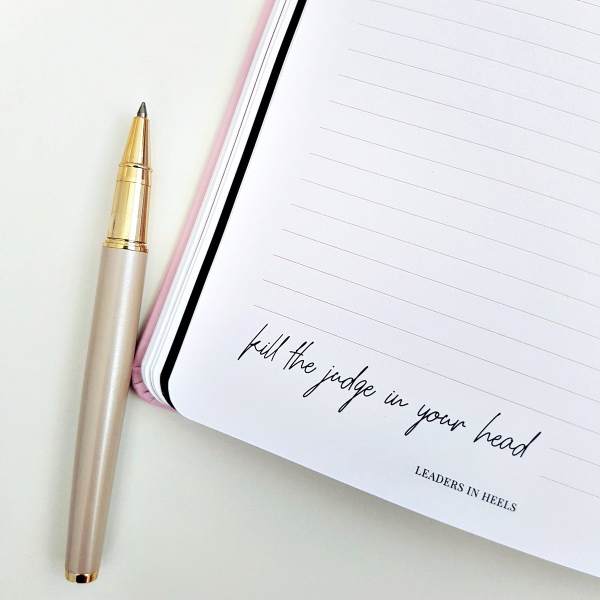 kill the judge in your head
LEADERS IN HEELS